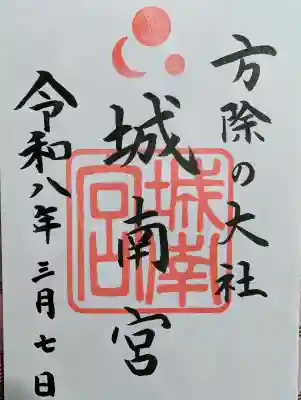 方除の大社
城南宮
城南宮
令和八年三月七日